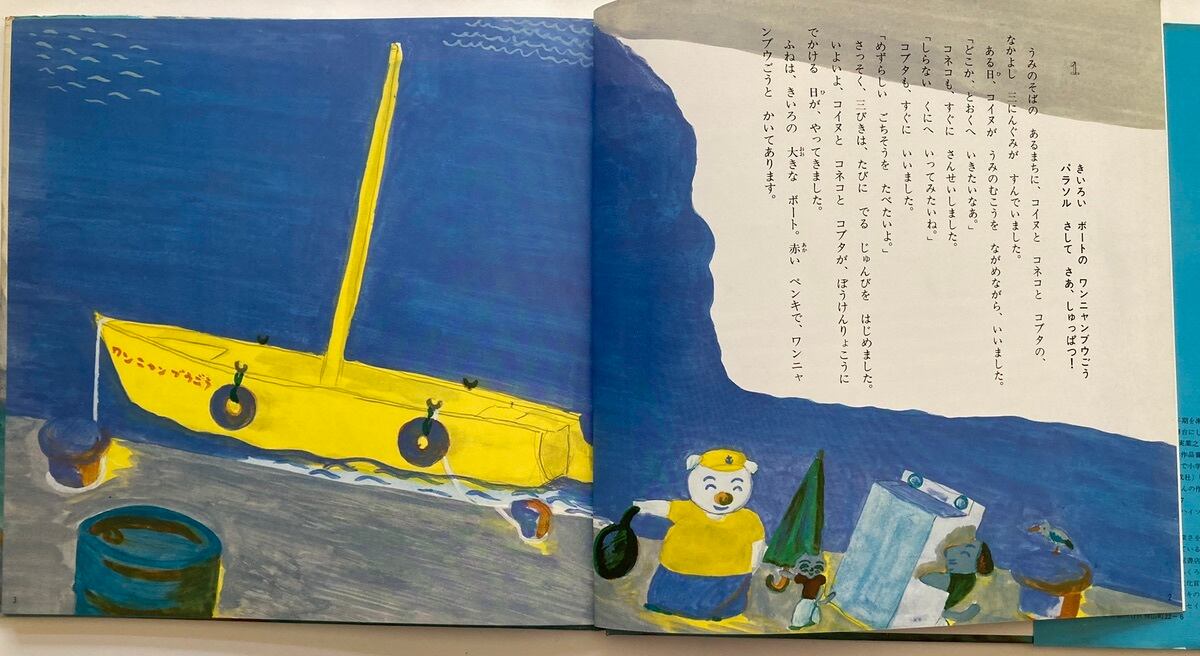 1
きいろい ボートの ワンニャンブウごう
パラソル さして さあ、しゅっぱつ!
うみのそばの あるまちに、コイヌと コネコと コブタの、
なかよし 三にんぐみが すんでいました。
ある日、コイヌが うみのむこうを ながめながら、いいました。
「どこか、とおくへ いきたいなあ。」
コネコも、すぐに さんせいしました。
「しらない くにへ いってみたいね。」
コブタも、すぐに いいました。
「めずらしい ごちそうを たべたいよ。」
さっそく、三びきは、たびに でる じゅんびを はじめました。
いよいよ、コイヌと コネコと コブタが、ぼうけんりょこうに
でかける 日が、やってきました。
ふねは、きいろの 大きな ボート。赤い ペンキで、ワンニャ
ンブウごうと かいてあります。
ワンニャンブウごう
3
2